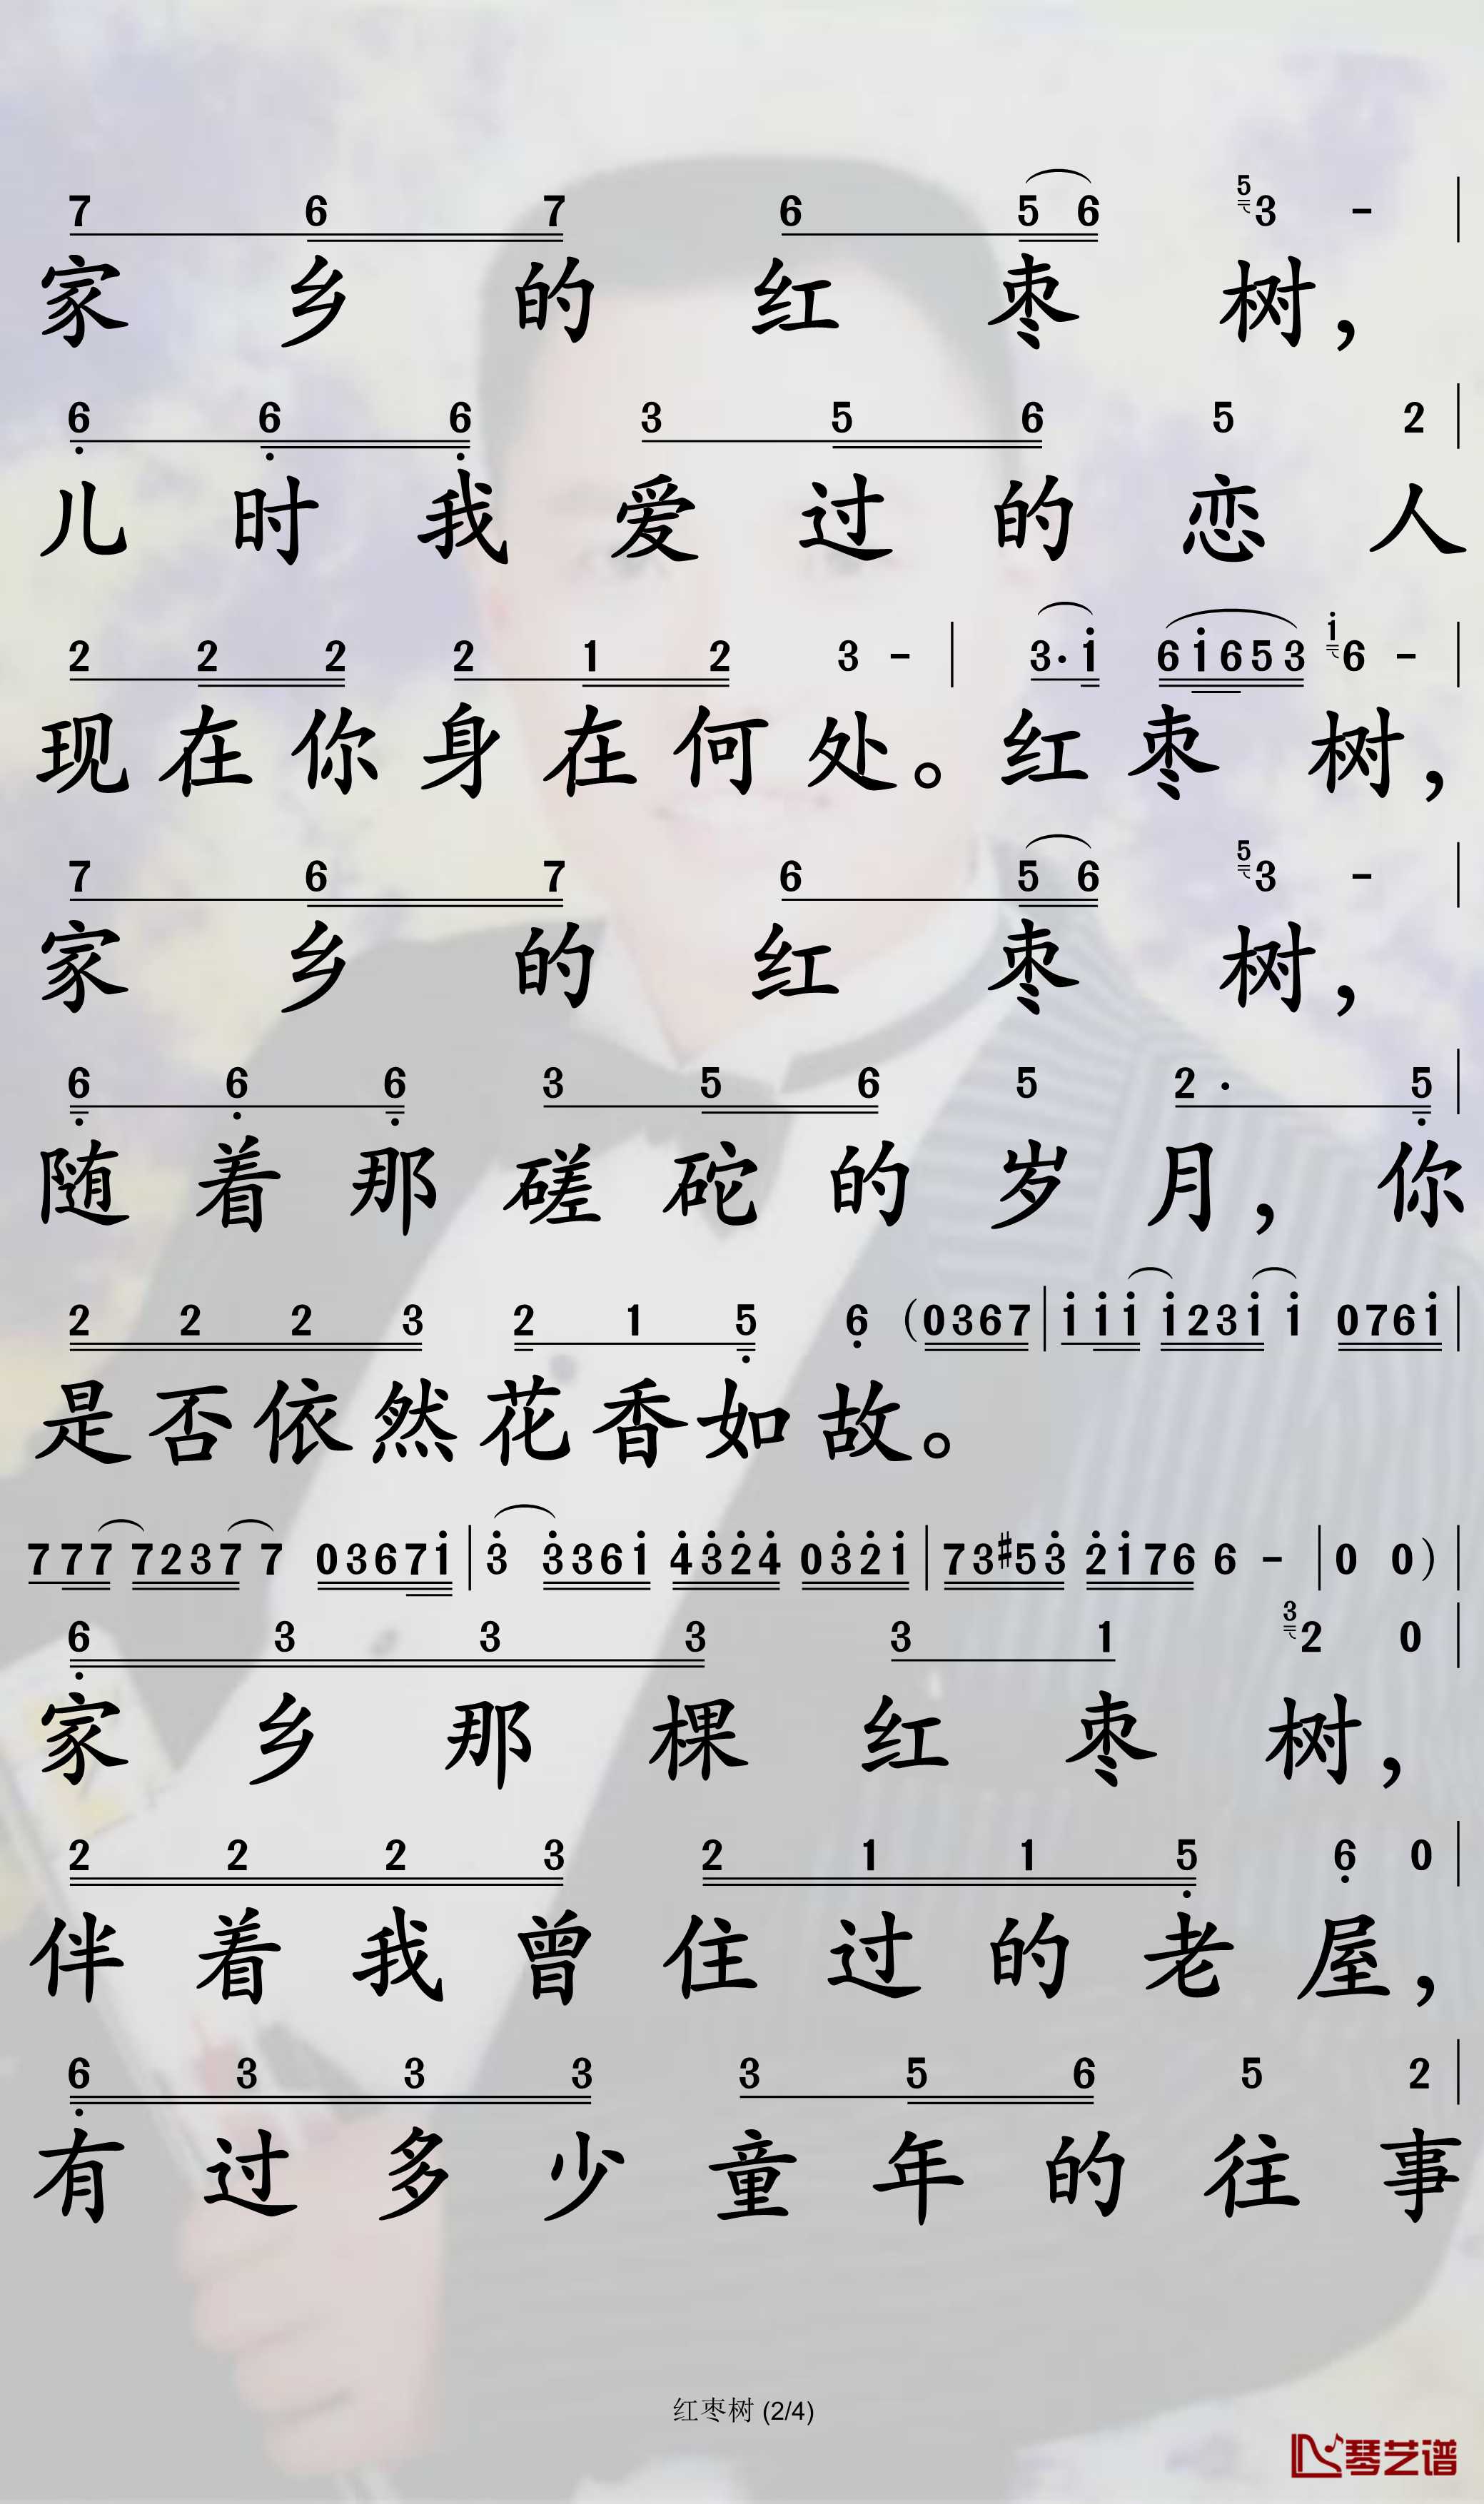 7 6 7 6 5 6 5 3 - |
家 乡 的 红 枣 树，
6̣ 6̣ 6̣ 3 5 6 5 2 |
儿 时 我 爱 过 的 恋 人
2 2 2 2 1 2 3 - | 3· i̇ 6 i̇ 6 5 3 i̇ 6 - |
现 在 你 身 在 何 处。 红 枣 树，
7 6 7 6 5 6 5 3 - |
家 乡 的 红 枣 树，
6̣ 6̣ 6̣ 3 5 6 5 2· 5̣ |
随 着 那 磋 砣 的 岁 月， 你
2 2 2 3 2 1 5̣ 6̣ (0367 | i̇ i̇i̇ i̇23i̇ i̇ 076i̇ |
是 否 依 然 花 香 如 故。
7 77 7237 7 0367i̇ | 3̇ 3̇36i̇ 4̇3̇2̇4̇ 03̇2̇i̇ | 73#53̇ 2̇i̇76 6 - | 0 0) |
6̣ 3 3 3 3 1 3 2 0 |
家 乡 那 棵 红 枣 树，
2 2 2 3 2 1 1 5̣ 6̣ 0 |
伴 着 我 曾 住 过 的 老 屋，
6̣ 3 3 3 3 5 6 5 2 |
有 过 多 少 童 年 的 往 事
红枣树 (2/4)
琴艺谱